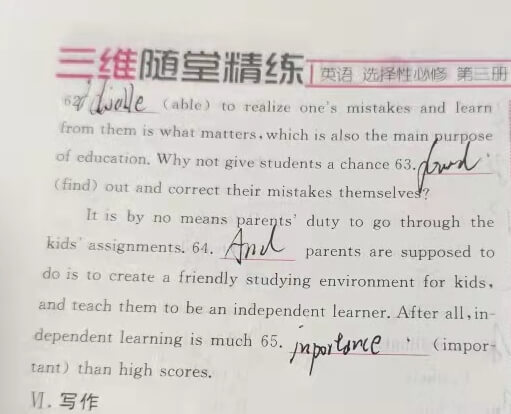 三维随堂精练 英语 选择性必修 第三册
62. (able) to realize one's mistakes and learn
from them is what matters, which is also the main purpose
of education. Why not give students a chance 63. found
(find) out and correct their mistakes themselves?
It is by no means parents' duty to go through the
kids' assignments. 64. And parents are supposed to
do is to create a friendly studying environment for kids,
and teach them to be an independent learner. After all, in-
dependent learning is much 65. inportance (impor-
tant) than high scores.
Ⅵ. 写作